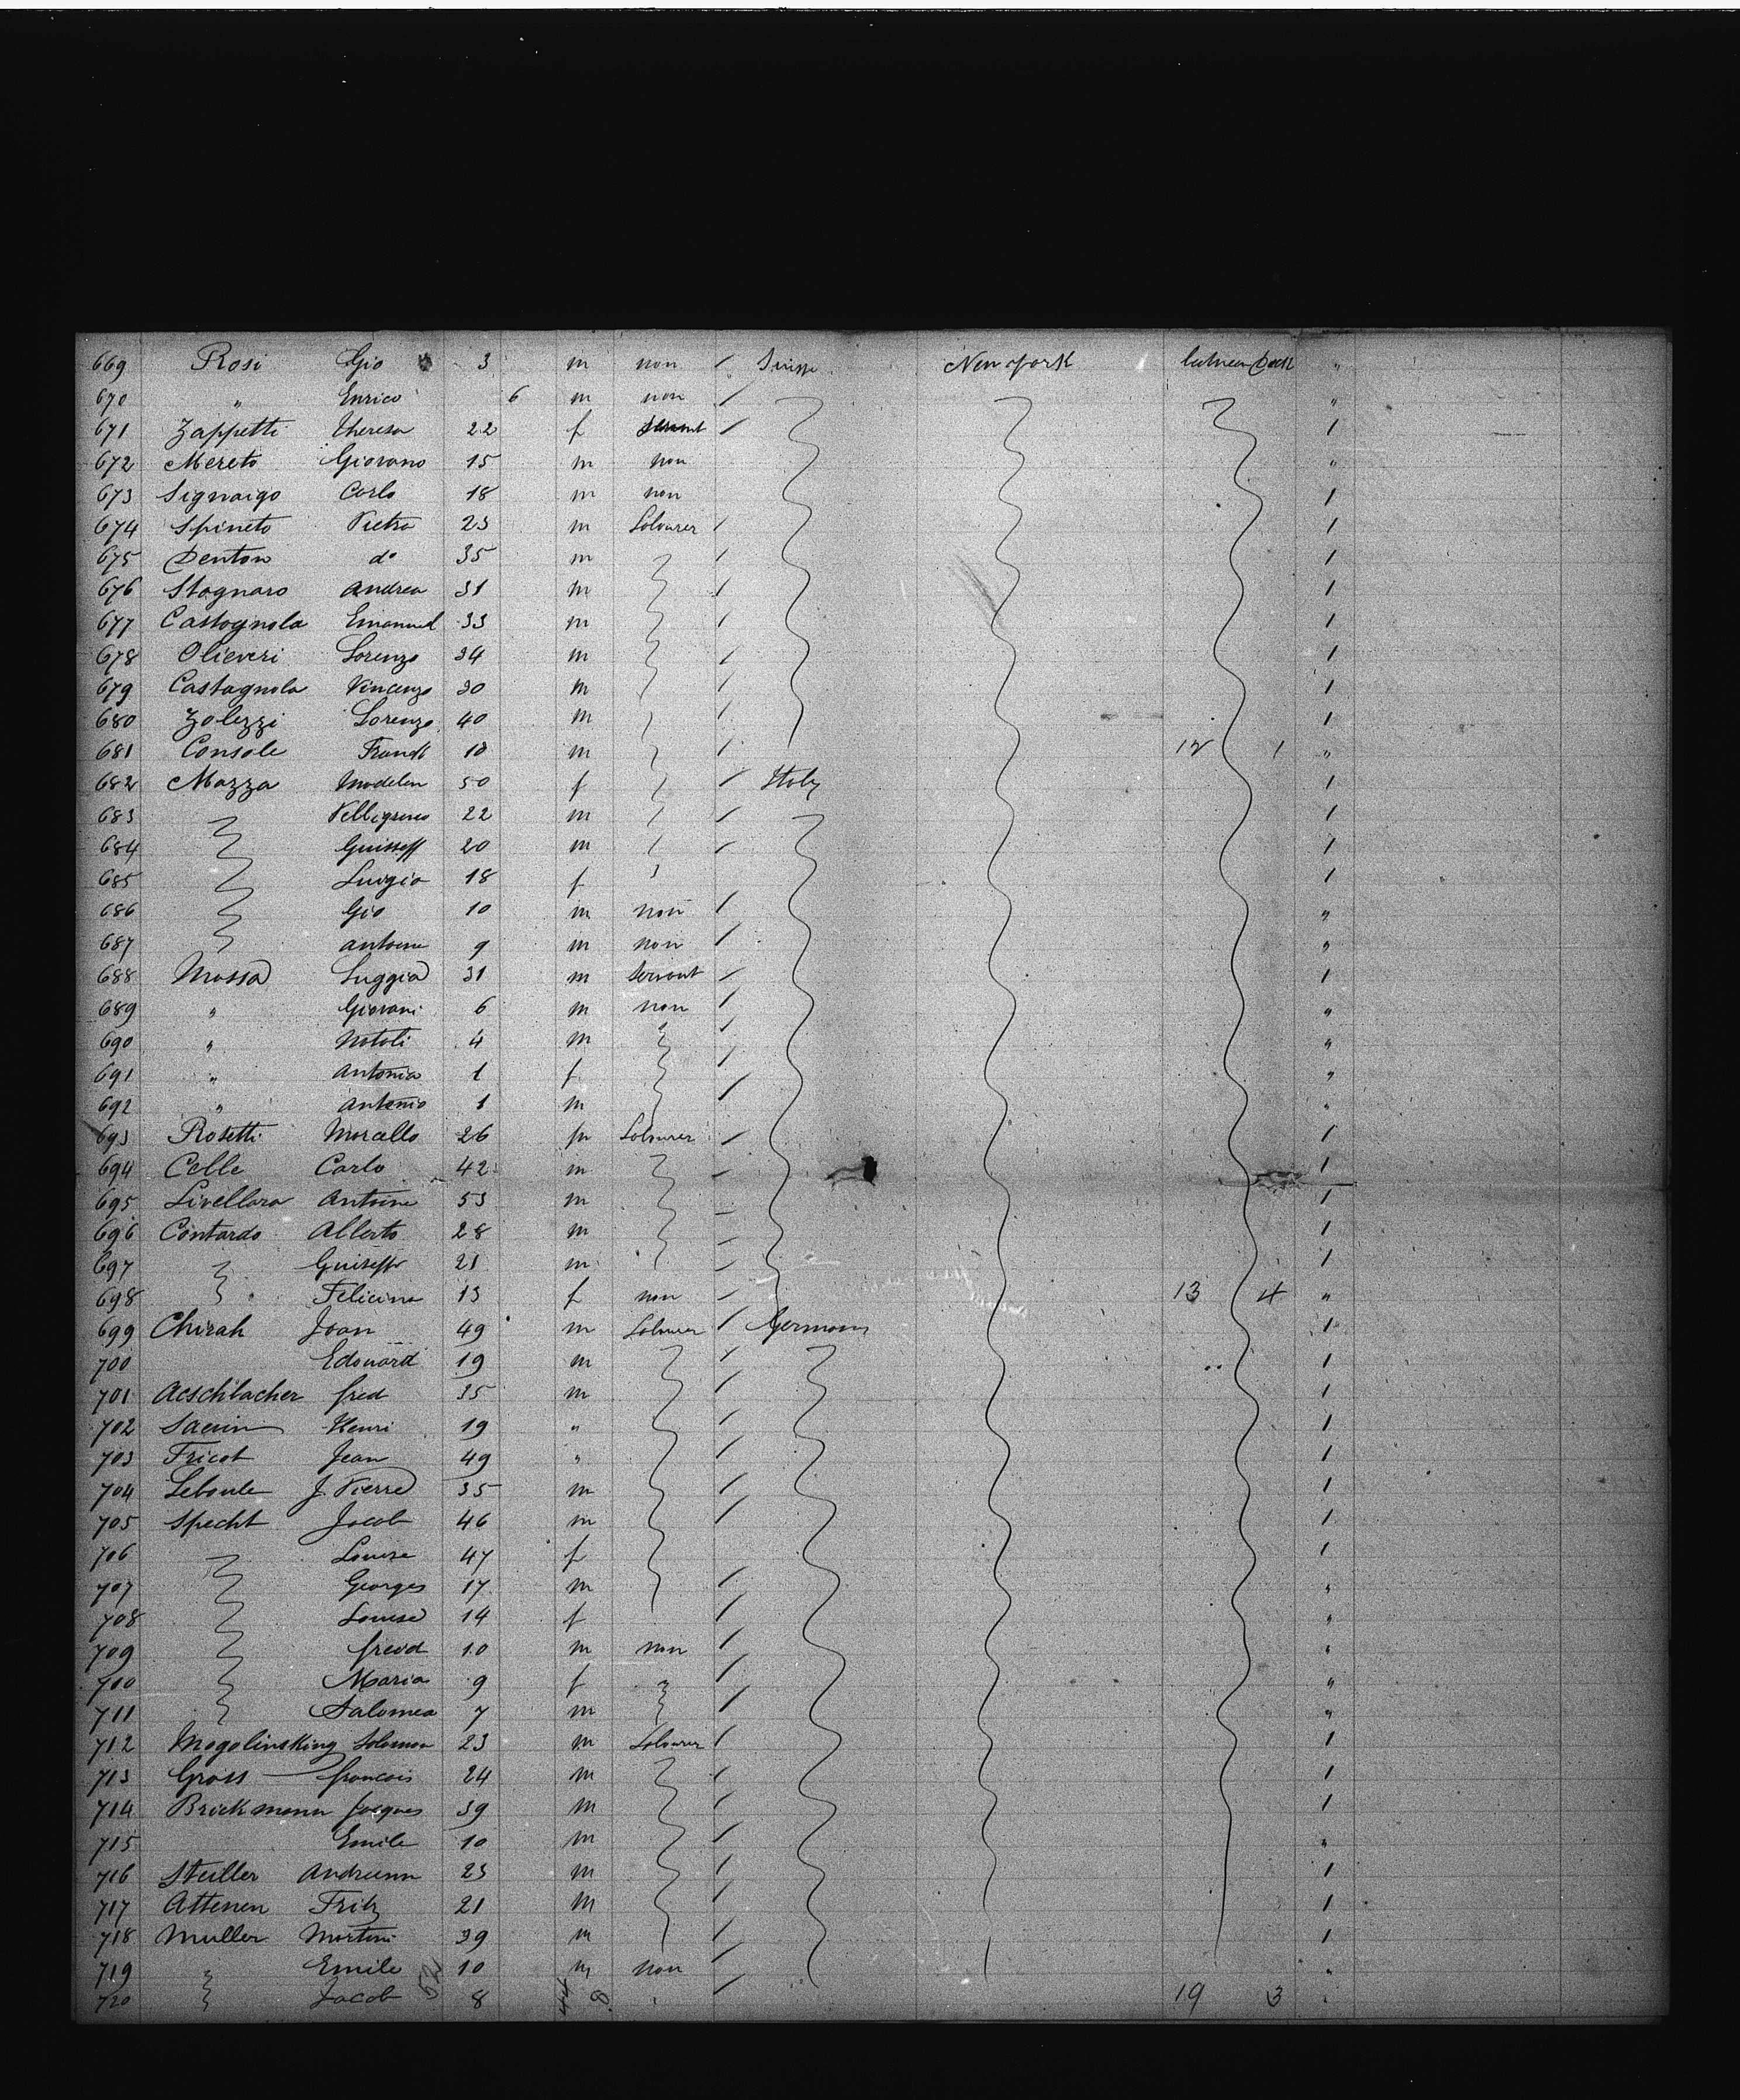 669 Rosi Gio 3 m non / Suisse New york between Deck "
670 " Enrico 6 m non / "
671 Zappetti Theresa 22 f Servant / 1
672 Mereto Giovano 15 m non "
673 Signaigo Carlo 18 m non 1
674 Spineto Pietro 23 m Labourer / 1
675 Denton do 35 m / 1
676 Stagnaro Andrea 31 m / 1
677 Castagnola Emanuel 33 m / 1
678 Olieveri Lorenzo 34 m / 1
679 Castagnola Vincenzo 30 m / 1
680 Zolezzi Lorenzo 40 m / 1
681 Console Frank 10 m / 12 1 "
682 Mazza Madelen 50 f / Italy 1
683 Pelligrino 22 m / 1
684 Guisseff 20 m / 1
685 Luigia 18 f 1
686 Gio 10 m non / "
687 antoine 9 m non / "
688 Massa Luggia 31 m Servant / 1
689 " Giovani 6 m non / "
690 " Natali 4 m " / "
691 " Antonia 1 f / "
692 " Antonio 1 m / "
693 Rosetti Marcello 26 m Labourer / 1
694 Celle Carlo 42 m / 1
695 Livellara Antoine 53 m / 1
696 Contardo Alberto 28 m / 1
697 Guiseppe 21 m / 1
698 Felicina 13 f non / 13 4 "
699 Chirah Joan 49 m Labourer / Germany 1
700 Edouard 19 m / 1
701 Aeschbacher fred 35 m / 1
702 Henri 19 " / 1
703 Fricot Jean 49 " / 1
704 Leboule J. Pierre 35 m / 1
705 Specht Jacob 46 m / 1
706 Louise 47 f 1
707 Georges 17 m / "
708 Louise 14 f / "
709 fredd 10 m non / "
710 Maria 9 f " / "
711 Salomea 7 m / "
712 Mogolinsking Solomon 23 m Labourer / 1
713 Gross francois 24 m / 1
714 Brickmann Jacques 39 m / 1
715 Emile 10 m / "
716 Steiller Andreann 23 m / 1
717 Attenen Fritz 21 m / 1
718 Muller Martini 39 m / 1
719 " Emile 10 m non / "
720 Jacob 52 8 44 8 / 19 3 "